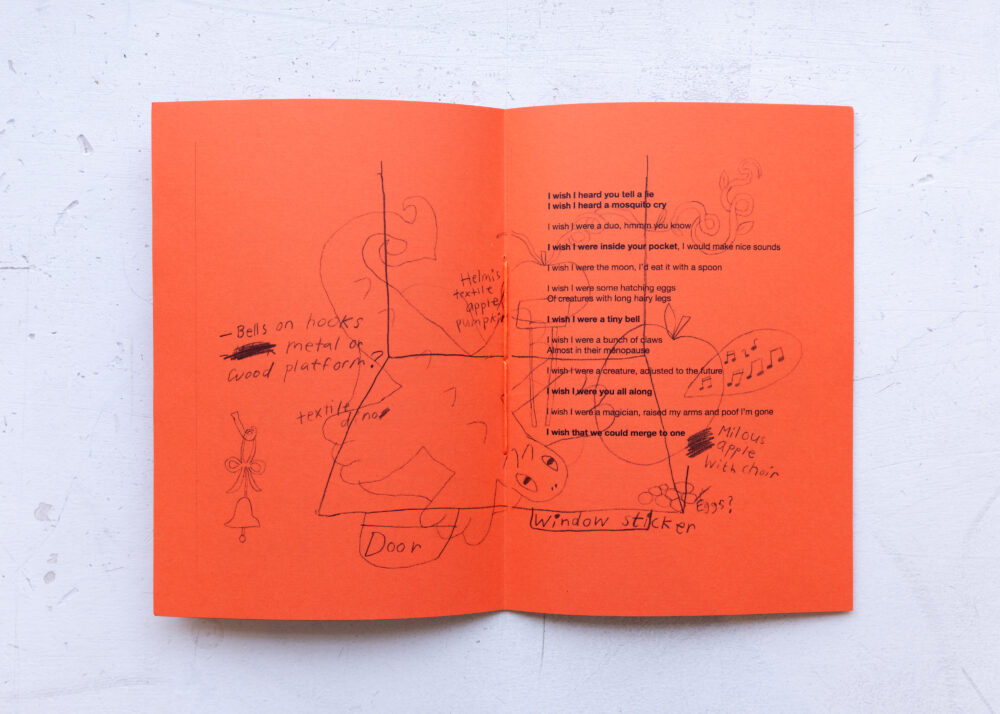 Helmis
textile
apple
pumpkin
– Bells on hooks
metal or
wood platform?
textile
dino
Door
I wish I heard you tell a lie
I wish I heard a mosquito cry
I wish I were a duo, hmmm you know
I wish I were inside your pocket, I would make nice sounds
I wish I were the moon, I'd eat it with a spoon
I wish I were some hatching eggs
Of creatures with long hairy legs
I wish I were a tiny bell
I wish I were a bunch of claws
Almost in their menopause
I wish I were a creature, adjusted to the future
I wish I were you all along
I wish I were a magician, raised my arms and poof I'm gone
I wish that we could merge to one
Milous
apple
with chair
Eggs?
Window sticker